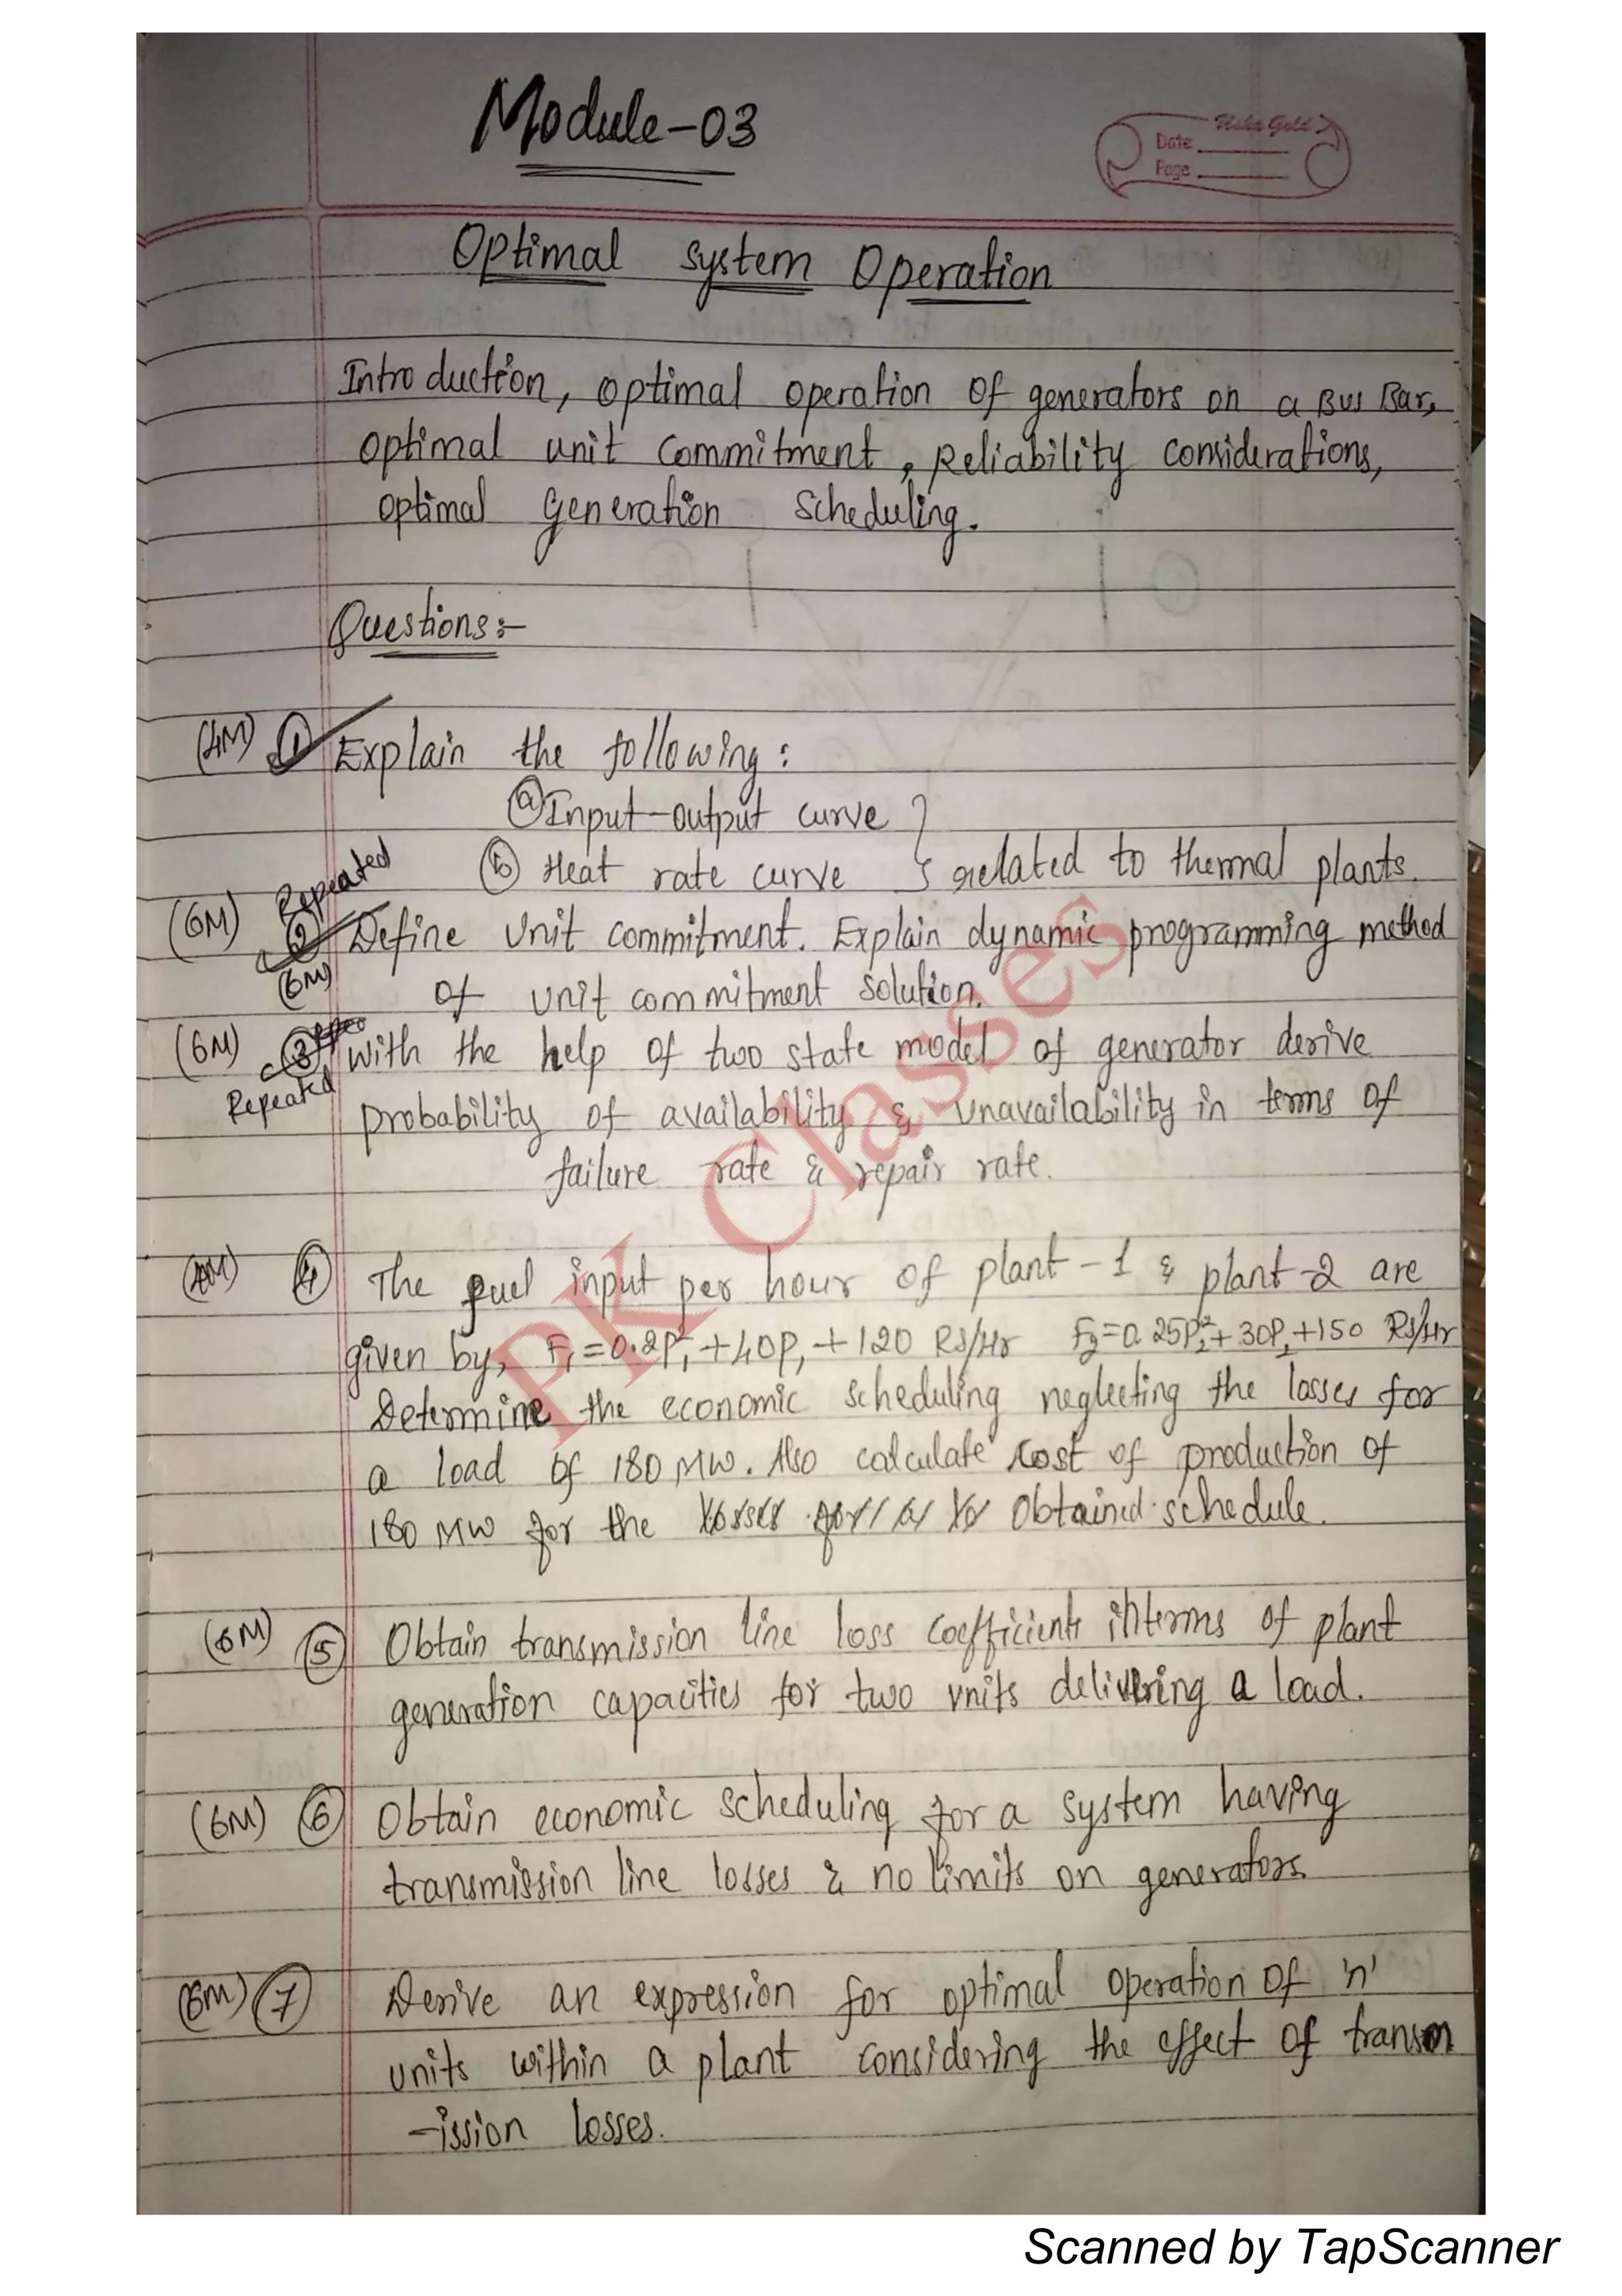 Module-03
Usha Gold
Date
Page
Optimal system Operation
Introduction, optimal operation of generators on a Bus Bar,
optimal unit commitment, Reliability considerations,
optimal generation scheduling.
Questions:-
(4M) ① Explain the following:
ⓐ Input-output curve
ⓑ Heat rate curve } related to thermal plants.
Repeated
(6M) ② Define Unit commitment. Explain dynamic programming method
(6M) of unit commitment solution.
(6M) ③ With the help of two state model of generator derive
Repeated probability of availability & unavailability in terms of
failure rate & repair rate.
④ The fuel input per hour of plant-1 & plant-2 are
given by, F₁=0.2P₁²+40P₁+120 RS/Hr F₂=0.25P₂²+30P₂+150 RS/Hr
Determine the economic scheduling neglecting the losses for
a load of 180 MW. Also calculate cost of production of
180 MW for the obtained schedule.
(6M) ⑤ Obtain transmission line loss coefficients interms of plant
generation capacities for two units delivering a load.
(6M) ⑥ Obtain economic scheduling for a system having
transmission line losses & no limits on generators.
(6M) ⑦ Derive an expression for optimal operation of 'n'
units within a plant considering the effect of transm
-ission losses.
PK Classes
Scanned by TapScanner